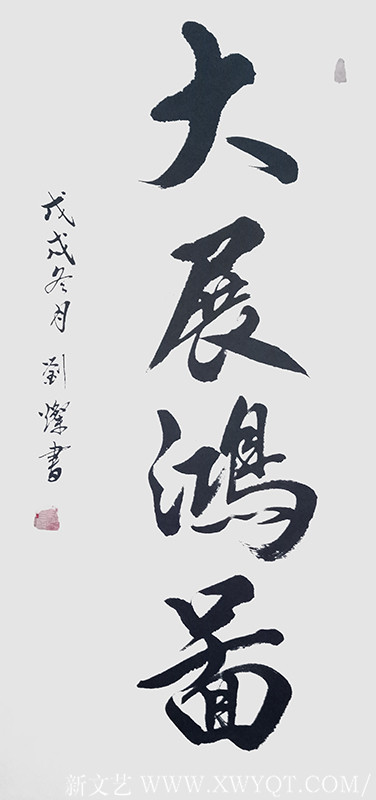 大展鴻圖
戊戌冬月 劉燦書
新文艺 WWW.XWYQT.COM